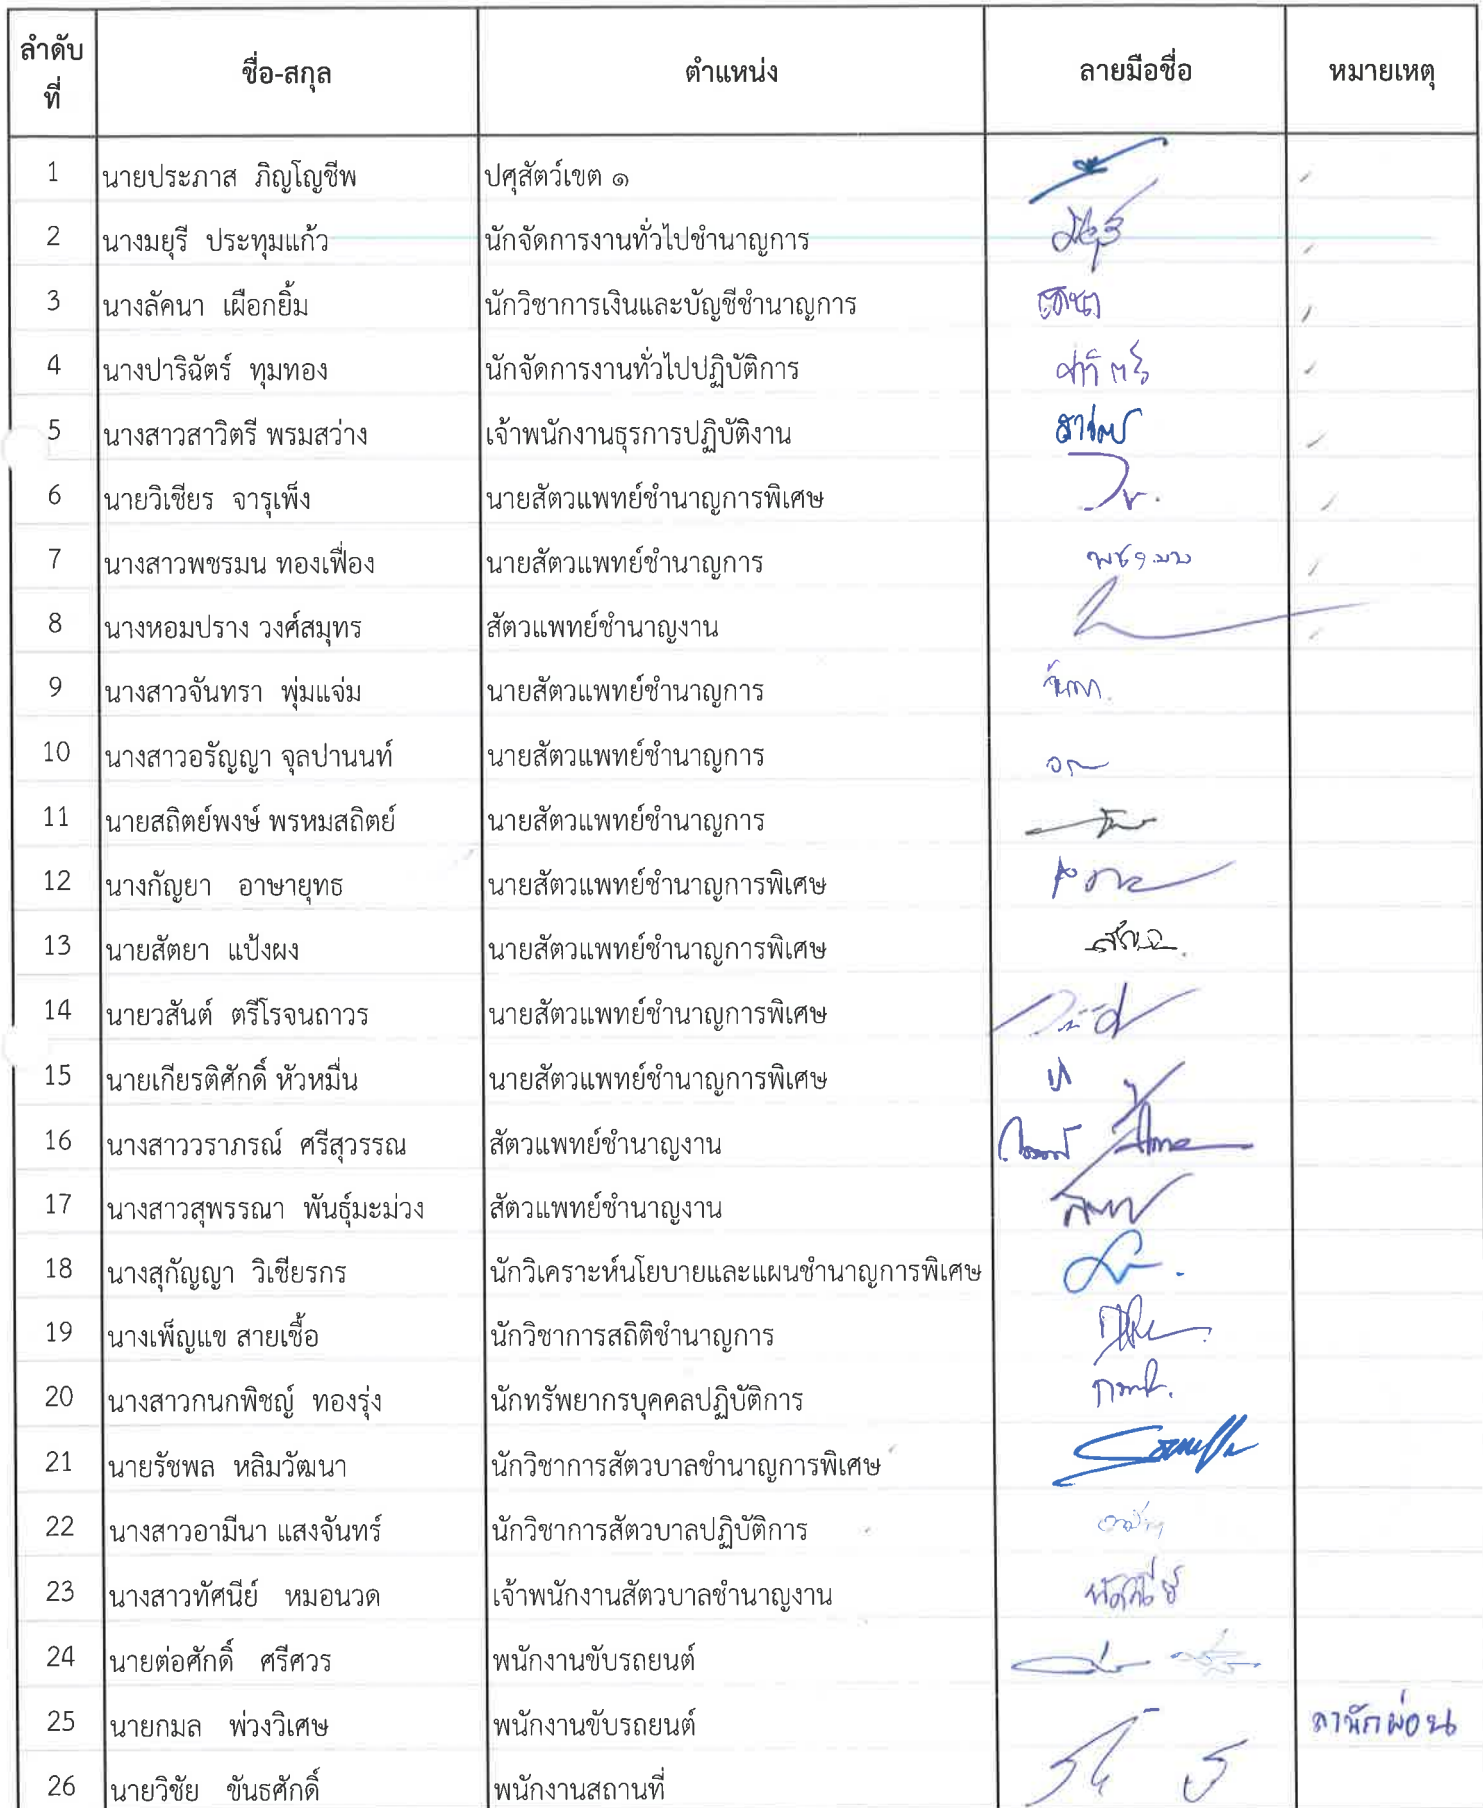 ลำดับที่ ชื่อ-สกุล ตำแหน่ง ลายมือชื่อ หมายเหตุ
1 นายประภาส ภิญโญชีพ ปศุสัตว์เขต ๑
2 นางมยุรี ประทุมแก้ว นักจัดการงานทั่วไปชำนาญการ
3 นางลัคนา เผือกยิ้ม นักวิชาการเงินและบัญชีชำนาญการ
4 นางปาริฉัตร์ ทุมทอง นักจัดการงานทั่วไปปฏิบัติการ
5 นางสาวสาวิตรี พรมสว่าง เจ้าพนักงานธุรการปฏิบัติงาน
6 นายวิเชียร จารุเพ็ง นายสัตวแพทย์ชำนาญการพิเศษ
7 นางสาวพชรมน ทองเฟื่อง นายสัตวแพทย์ชำนาญการ
8 นางหอมปราง วงศ์สมุทร สัตวแพทย์ชำนาญงาน
9 นางสาวจันทรา พุ่มแจ่ม นายสัตวแพทย์ชำนาญการ
10 นางสาวอรัญญา จุลปานนท์ นายสัตวแพทย์ชำนาญการ
11 นายสถิตย์พงษ์ พรหมสถิตย์ นายสัตวแพทย์ชำนาญการ
12 นางกัญยา อาษายุทธ นายสัตวแพทย์ชำนาญการพิเศษ
13 นายสัตยา แป้งผง นายสัตวแพทย์ชำนาญการพิเศษ
14 นายวสันต์ ตรีโรจนถาวร นายสัตวแพทย์ชำนาญการพิเศษ
15 นายเกียรติศักดิ์ หัวหมื่น นายสัตวแพทย์ชำนาญการพิเศษ
16 นางสาววราภรณ์ ศรีสุวรรณ สัตวแพทย์ชำนาญงาน
17 นางสาวสุพรรณา พันธุ์มะม่วง สัตวแพทย์ชำนาญงาน
18 นางสุกัญญา วิเชียรกร นักวิเคราะห์นโยบายและแผนชำนาญการพิเศษ
19 นางเพ็ญแข สายเชื้อ นักวิชาการสถิติชำนาญการ
20 นางสาวกนกพิชญ์ ทองรุ่ง นักทรัพยากรบุคคลปฏิบัติการ
21 นายรัชพล หลิมวัฒนา นักวิชาการสัตวบาลชำนาญการพิเศษ
22 นางสาวอามีนา แสงจันทร์ นักวิชาการสัตวบาลปฏิบัติการ
23 นางสาวทัศนีย์ หมอนวด เจ้าพนักงานสัตวบาลชำนาญงาน ทัศนีย์
24 นายต่อศักดิ์ ศรีศวร พนักงานขับรถยนต์
25 นายกมล พ่วงวิเศษ พนักงานขับรถยนต์ ลาพักผ่อน
26 นายวิชัย ขันธศักดิ์ พนักงานสถานที่